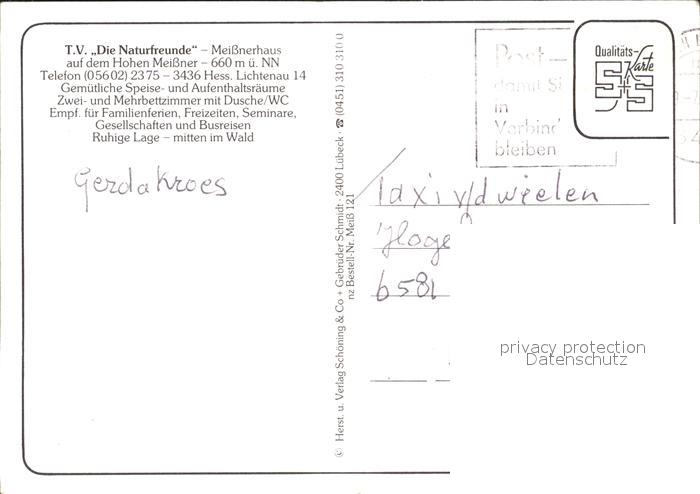 T.V. „Die Naturfreunde“ – Meißnerhaus
auf dem Hohen Meißner – 660 m ü. NN
Telefon (05602) 2375 – 3436 Hess. Lichtenau 14
Gemütliche Speise- und Aufenthaltsräume
Zwei- und Mehrbettzimmer mit Dusche/WC
Empf. für Familienferien, Freizeiten, Seminare,
Gesellschaften und Busreisen
Ruhige Lage – mitten im Wald
Gerda Kroes
Herst. u. Verlag Schöning & Co + Gebrüder Schmidt · 2400 Lübeck · ☎ (0451) 310 310
nz Bestell-Nr. Meiß 121
Post –
damit Si
in
Verbind
bleiben
Qualitäts-
Karte
Taxi v/d wielen
Hoge
6581
privacy protection
Datenschutz